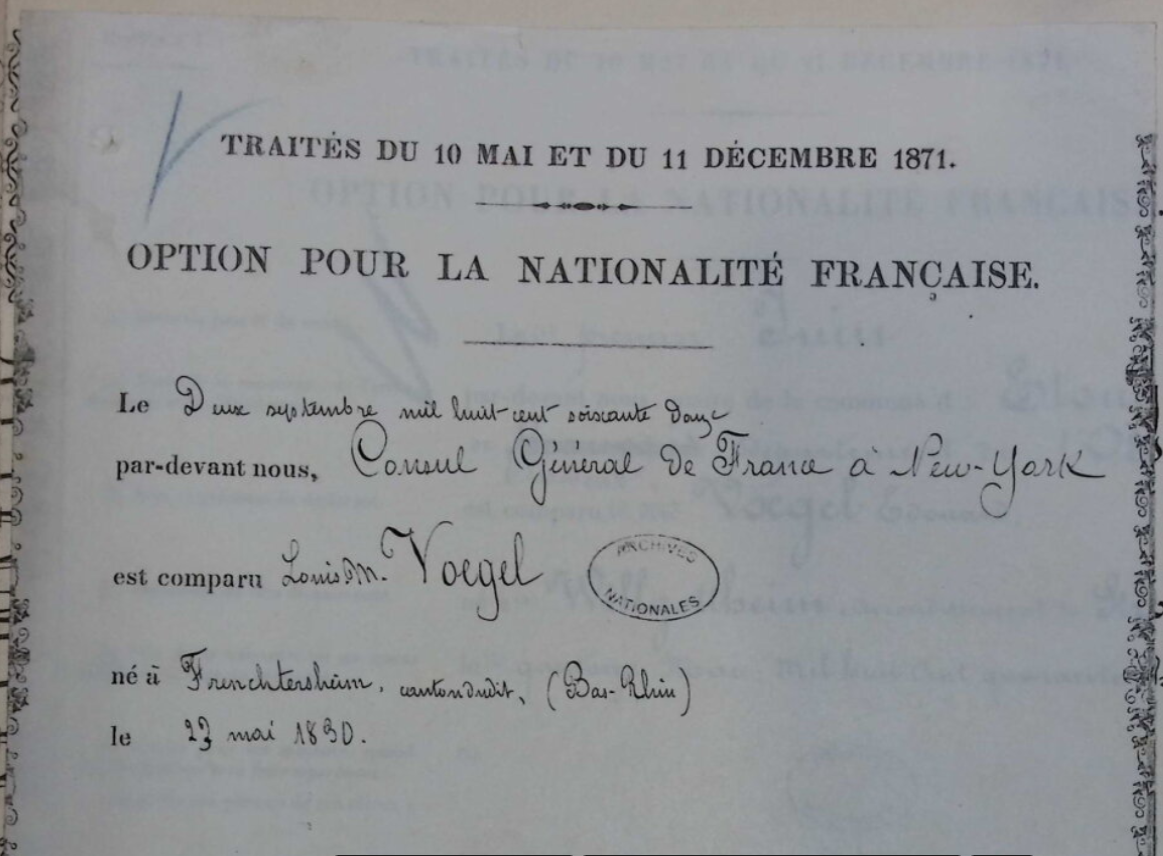 TRAITÉS DU 10 MAI ET DU 11 DÉCEMBRE 1871.
OPTION POUR LA NATIONALITÉ FRANÇAISE.
Le Deux septembre mil huit-cent soixante douze
par-devant nous, Consul Général de France a New-York
est comparu Louis M. Voegel
ARCHIVES
NATIONALES
né à Frenchtersheim, cantondudit, (Bas-Rhin)
le 23 mai 1830.